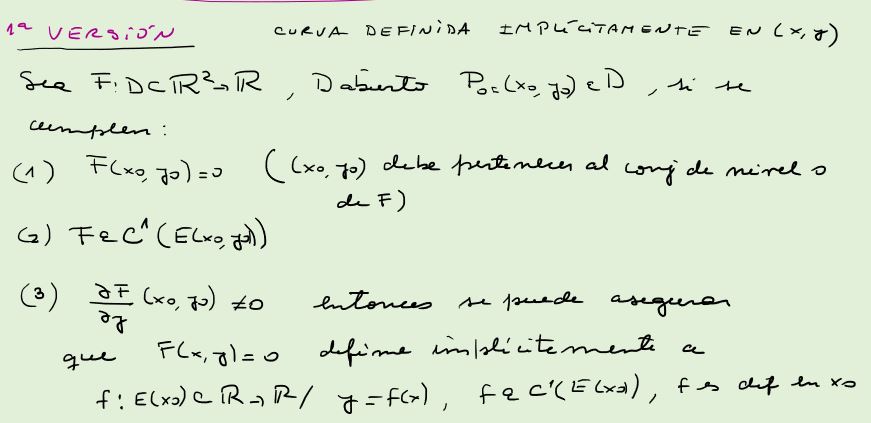 1ª VERSIÓN CURVA DEFINIDA IMPLÍCITAMENTE EN (x, y)
Sea F: D⊂ℝ²→ℝ, D abierto P₀=(x₀, y₀) ∈ D, si se
cumplen:
(1) F(x₀, y₀)=0 ((x₀, y₀) debe pertenecer al conj de nivel 0
de F)
(2) F∈C¹(E(x₀, y₀))
(3) ∂F/∂y (x₀, y₀) ≠0 entonces se puede asegurar
que F(x, y)=0 define implícitamente a
f: E(x₀)⊂ℝ→ℝ/ y=f(x), f∈C¹(E(x₀)), f es dif en x₀